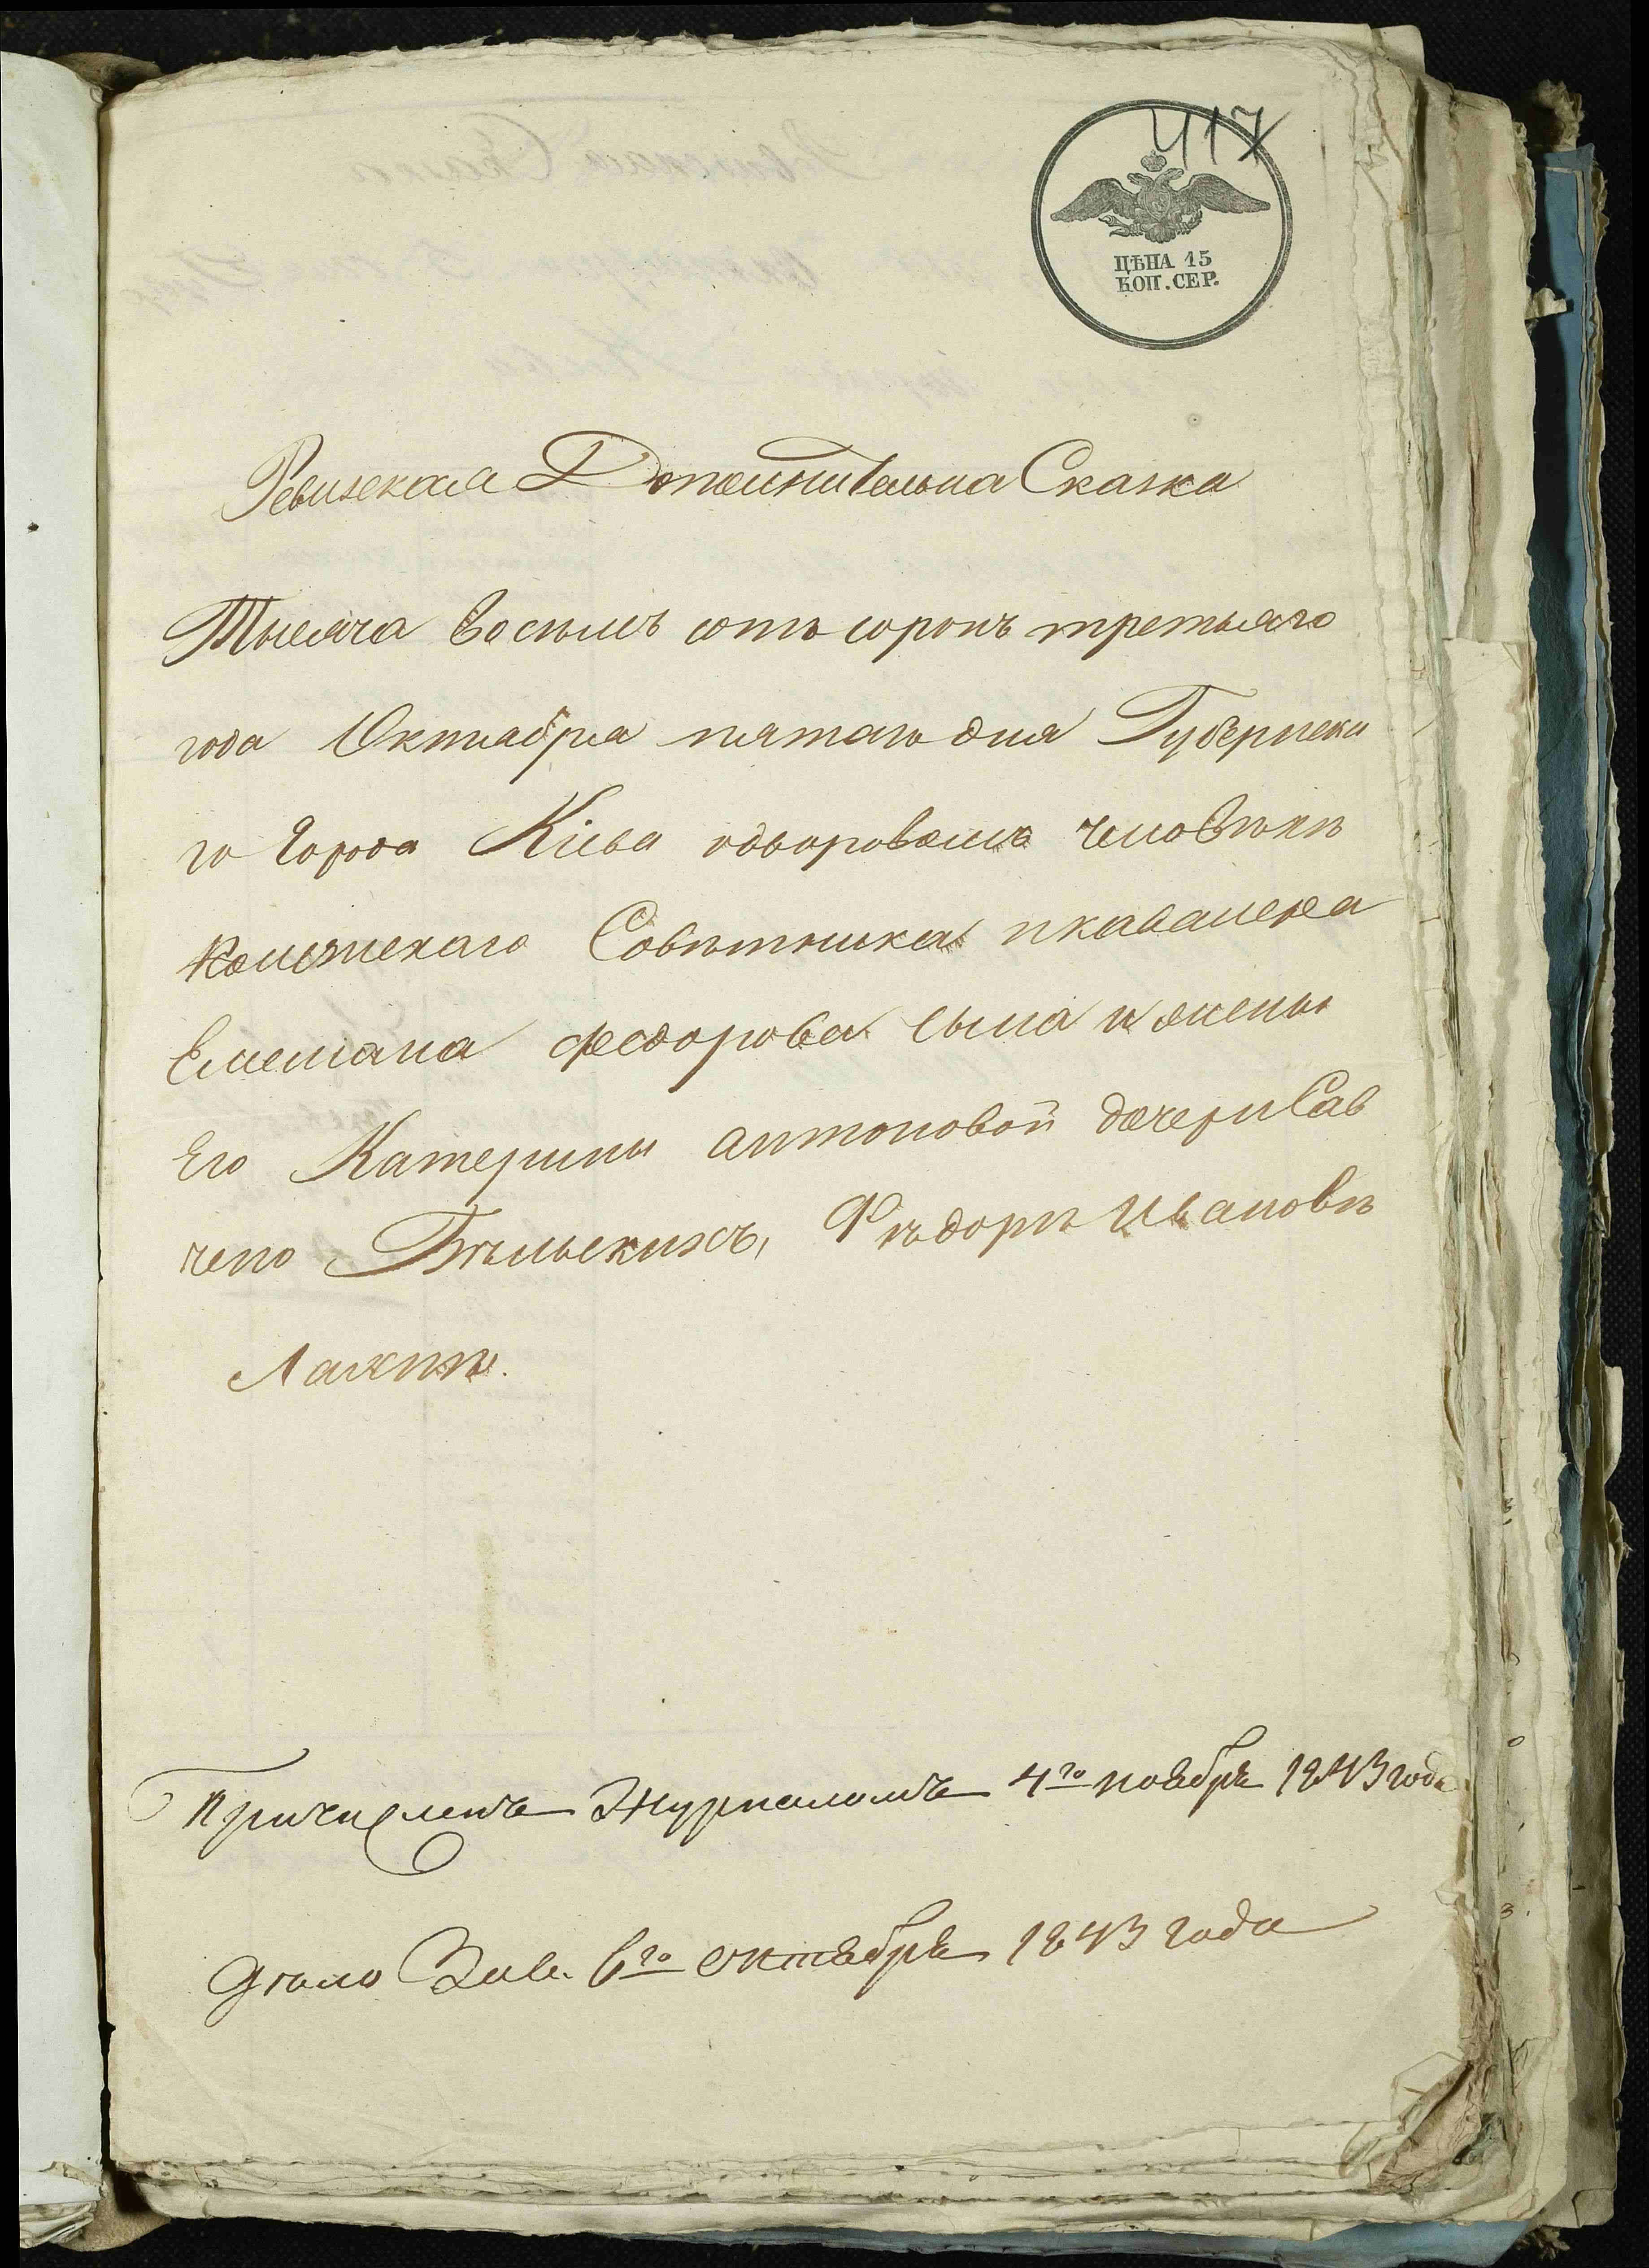 417
ЦѢНА 15
КОП. СЕР.
Ревизская Дополнительна Сказка
Тысяча восемъ сотъ сорокъ третьяго
года Октября пятаго дня Губернска
го Города Кіева одворовомъ человѣкѣ
Колежскаго Совѣтника икавалера
Емельяна Федорова сына и жены
Его Катерины антоновой дочери Сав
чено Бѣльскихъ, Фѣдорѣ Ивановѣ
Причисленъ Журналомъ 4го ноября 1843 года
Дѣло Зав. 6го октября 1843 года